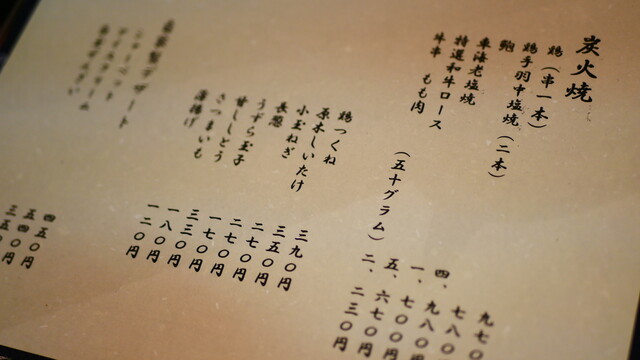 炭火焼
鶏（串一本） 九七
鶏手羽中塩焼（二本） 七八〇
鮑 四、九八〇
車海老塩焼 一、七〇〇
特選和牛ロース（五十グラム） 五、六七〇円
牛串 もも肉 二、二三〇円
鶏つくね 三九〇円
原木しいたけ 三五〇円
小玉ねぎ 二七〇円
長葱 二七〇円
うずら玉子 一七〇円
甘ししとう 三三〇円
さつまいも 一八〇円
薄揚げ 一二〇円
自家製デザート
シャーベット 四五〇円
アイスクリーム